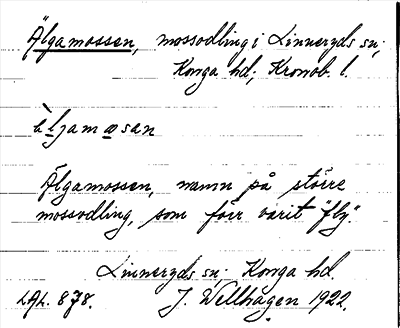 Älgamossen, mossodling i Linneryds sn;
Konga hd; Kronob. l.
àljamosan
Älgamossen, namn på större
mossodling, som förr varit "fly".
Linneryds sn; Konga hd.
LAL. 878. J. Wellhagen 1922.